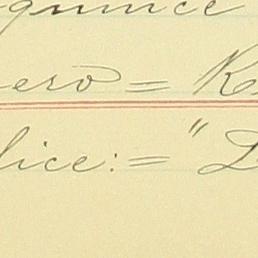 quince
ero = K
lice: = "D